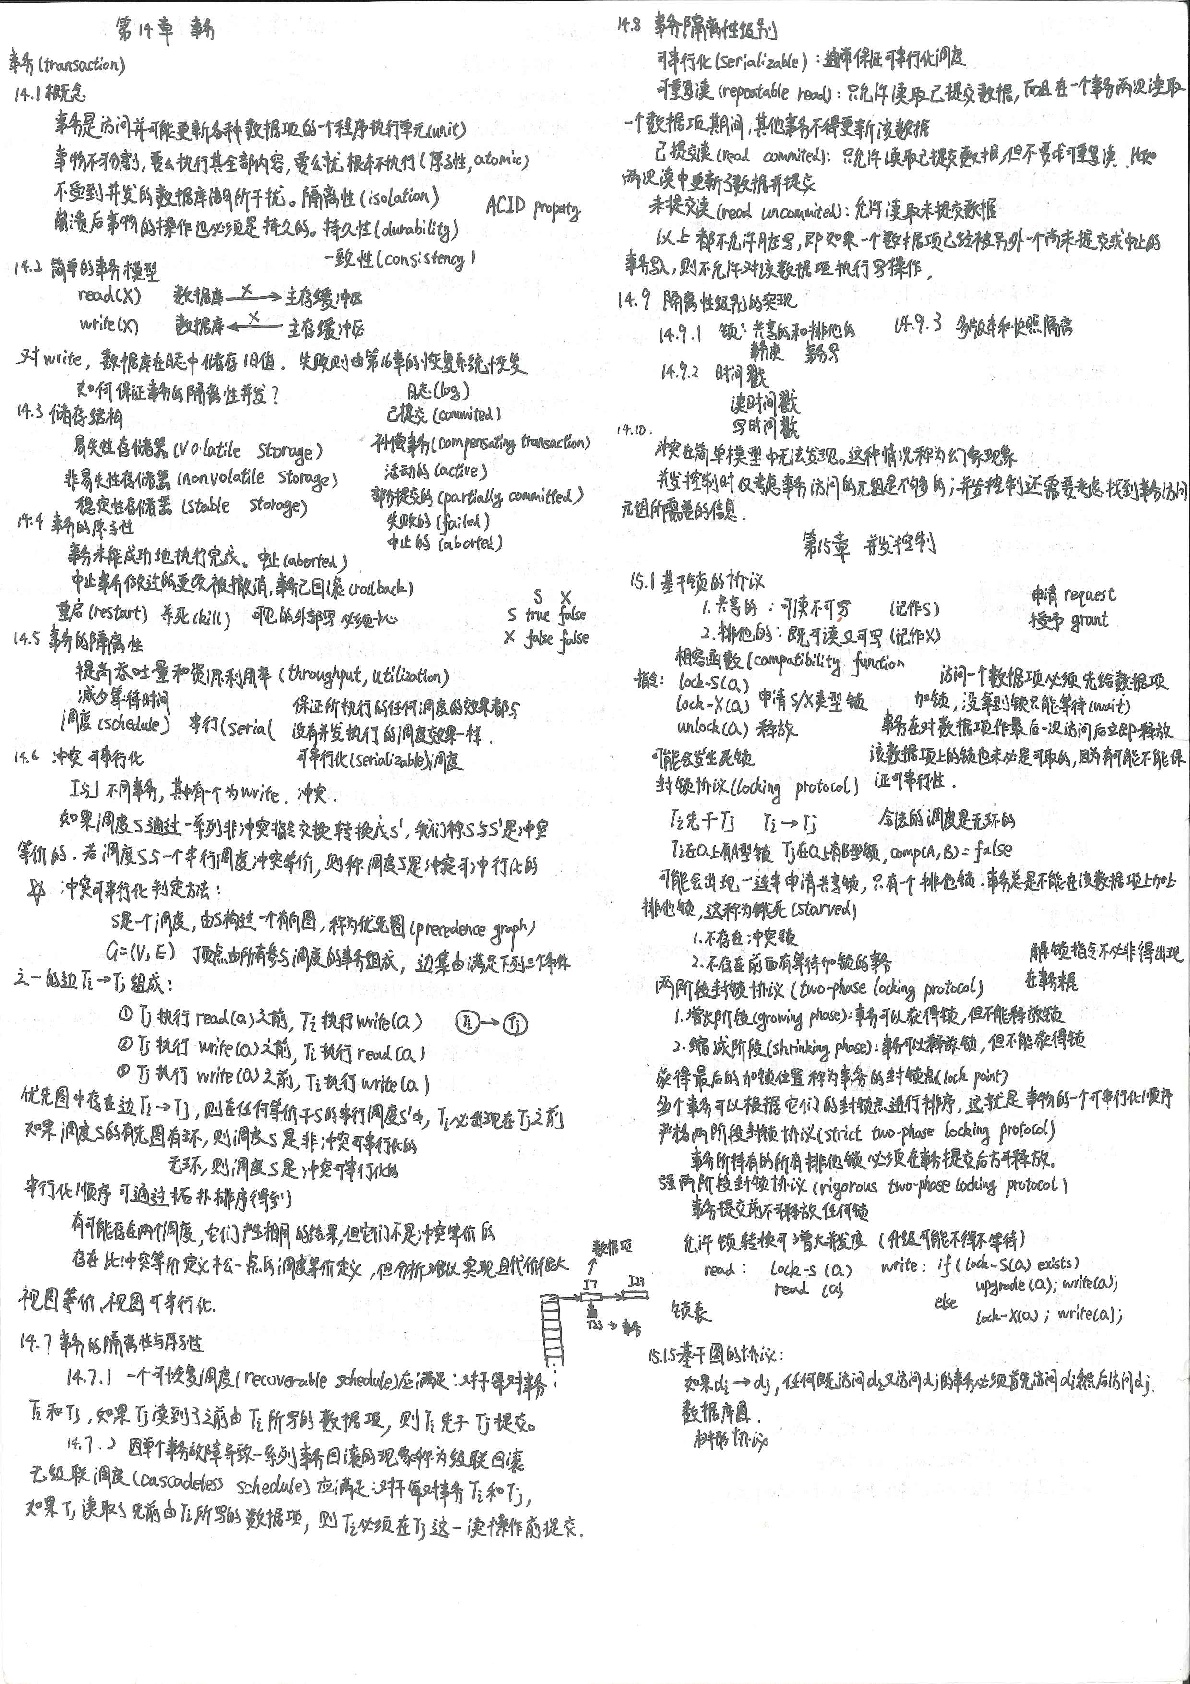 第14章 事务
事务(transaction)
14.1 概念
事务是访问并可能更新各种数据项的一个程序执行单元(unit)
事物不可分割,要么执行其全部内容,要么就根本不执行(原子性,atomic)
不受到并发的数据库语句所干扰。隔离性(isolation)
ACID property
崩溃后事物的操作也必须是持久的。持久性(durability)
一致性(consistency)
14.2 简单的事务模型
read(X) 数据库 X 主存缓冲区
write(X) 数据库 X 主存缓冲区
对write,数据库在日志中储存旧值. 失败则由第16章的恢复系统恢复
如何保证事务的隔离性并发? 日志(log)
14.3 储存结构 已提交(commited)
易失性存储器(Volatile Storage) 补偿事务(compensating transaction)
非易失性存储器(nonvolatile Storage) 活动的(active)
稳定性存储器(stable storage) 部分提交的(partially committed)
14.4 事务的原子性 失败的(failed)
事务未能成功地执行完成。中止(aborted) 中止的(aborted)
中止事务做过的更改被撤消,事务已回滚(rollback)
重启(restart) 杀死(kill) 可见的外部写
S X
S true false
X false false
14.5 事务的隔离性
提高吞吐量和资源利用率(throughput, utilization)
减少等待时间
调度(schedule) 串行(serial
保证所执行的任何调度的效果都与
没有并发执行的调度效果一样.
14.6 冲突可串行化 可串行化(serializable)调度
I与J不同事务,其中有一个为write. 冲突.
如果调度S通过一系列非冲突指令交换转换成S',我们称S与S'是冲突
等价的. 若调度S与一个串行调度冲突等价,则称调度S是冲突可冲行化的
☆ 冲突可串行化判定方法:
S是一个调度,由S构造一个有向图,称为优先图(precedence graph)
G=(V,E) 顶点由所有参与调度的事务组成, 边集由满足下列三个条件
之一的边Ti→Tj组成:
① Tj执行read(Q)之前, Ti执行write(Q) Ti→Tj
② Tj执行write(Q)之前, Ti执行read(Q)
③ Tj执行write(Q)之前, Ti执行write(Q)
优先图中存在边Ti→Tj,则在任何等价于S的串行调度S'中, Ti必出现在Tj之前
如果调度S的有先图有环,则调度S是非冲突可串行化的
无环,则调度S是冲突可串行化的
串行化顺序可通过拓扑排序得到
有可能存在两个调度,它们产生相同的结果,但它们不是冲突等价的
存在比冲突等价定义松一点的调度等价定义,但分析难以实现且代价很大
视图等价,视图可串行化.
数据项
I7 I23
T23→事务
14.7 事务的隔离性与原子性
14.7.1 一个可恢复调度(recoverable schedule)应满足:对于每对事务
Ti和Tj,如果Tj读到了之前由Ti所写的数据项,则Ti先于Tj提交。
14.7.2 因单个事务故障导致一系列事务回滚的现象称为级联回滚
无级联调度(cascadeless schedule)应满足:对于每对事务Ti和Tj,
如果Tj读取了先前由Ti所写的数据项,则Ti必须在Tj这一读操作前提交.
14.8 事务隔离性级别
可串行化(serializable):通常保证可串行化调度
可重复读(repeatable read):只允许读取已提交数据,而且在一个事务两次读取
一个数据项期间,其他事务不得更新该数据
已提交读(read commited):只允许读取已提交数据,但不要求可重复读.
两次读中更新了数据并提交
未提交读(read uncommited):允许读取未提交数据
以上都不允许脏写,即如果一个数据项已经被另外一个尚未提交或中止的
事务写入,则不允许对该数据项执行写操作.
14.9 隔离性级别的实现
14.9.1 锁:共享的和排他的 14.9.3 多版本和快照隔离
事务读 事务写
14.9.2 时间戳
读时间戳
写时间戳
14.10.
冲突在简单模型中无法发现,这种情况称为幻象现象
并发控制时仅考虑事务访问的元组是不够的;并发控制还需要考虑找到事务访问
元组所需要的信息.
第15章 并发控制
15.1 基于锁的协议
1.共享的:可读不可写 (记作S) 申请 request
2.排他的:既可读又可写(记作X) 授予 grant
相容函数(compatibility function
lock-S(Q)
lock-X(Q) 申请S/X类型锁
unlock(Q) 释放
访问一个数据项必须先给数据项
加锁,没拿到锁只能等待(wait)
事务在对数据项作最后一次访问后立即释放
该数据项上的锁也未必是可取的,因为有可能不能保
证可串行性.
可能会发生死锁
封锁协议(locking protocol)
Ti先于Tj Ti→Tj 合法的调度是无环的
Ti在Q上有A型锁 Tj在Q上有B型锁, comp(A,B)=false
可能会出现一连串申请共享锁,只有个排他锁.事务总是不能在该数据项上加上
排他锁,这称为饿死(starved)
1.不存在冲突锁
2.不存在前面有等待加锁的事务
解锁指令不必非得出现
在事务末尾
两阶段封锁协议(two-phase locking protocol)
1.增长阶段(growing phase):事务可以获得锁,但不能释放锁
2.缩减阶段(shrinking phase):事务可以释放锁,但不能获得锁
获得最后的加锁位置称为事务的封锁点(lock point)
多个事务可以根据它们的封锁点进行排序,这就是事物的一个可串行化顺序
严格两阶段封锁协议(strict two-phase locking protocol)
事务所持有的所有排他锁必须在事务提交后方可释放。
强两阶段封锁协议(rigorous two-phase locking protocol)
事务提交前不可释放任何锁
允许锁转换可增大并发度 (升级可能不得不等待)
read: lock-S(Q) write: if(lock-S(Q) exists)
read(Q) upgrade(Q); write(Q);
else
lock-X(Q); write(Q);
锁表
15.1.5 基于图的协议:
如果di→dj,任何既访问di又访问dj的事务必须首先访问di然后访问dj.
数据库图.
树形协议